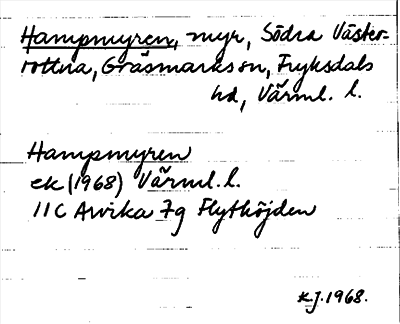 Hampmyren, myr, Södra Väster-
rottna, Gräsmarks sn, Fryksdals
hd, Värml. l.
Hampmyren
ek (1968) Värml. l.
11C Arvika 7g Flythöjden
K.J. 1968.